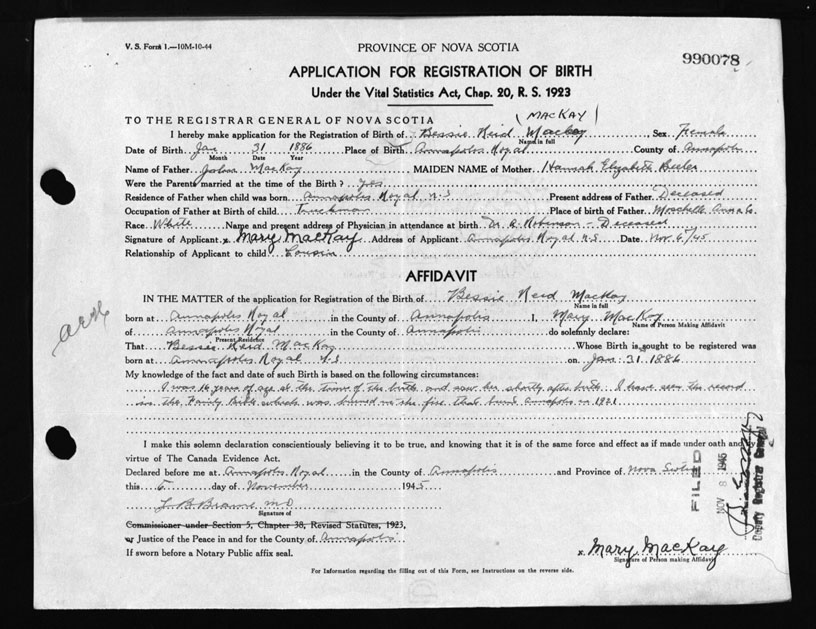 V. S. Form 1.—10M-10-44
PROVINCE OF NOVA SCOTIA
990078
APPLICATION FOR REGISTRATION OF BIRTH
Under the Vital Statistics Act, Chap. 20, R. S. 1923
(MACKAY)
TO THE REGISTRAR GENERAL OF NOVA SCOTIA
I hereby make application for the Registration of Birth of Bessie Reid Mackay, Sex Female
Name in full
Date of Birth Jan 31 1886 Place of Birth Annapolis Royal County of Annapolis
Month Date Year
Name of Father John MacKay MAIDEN NAME of Mother Hannah Elizabeth Beeler
Were the Parents married at the time of the Birth? yes
Residence of Father when child was born Annapolis Royal N.S Present address of Father Deceased
Occupation of Father at Birth of child Truckman Place of birth of Father Moschelle Anna Co.
Race White Name and present address of Physician in attendance at birth Dr. A. Robinson - Deceased
Signature of Applicant x Mary MacKay Address of Applicant Annapolis Royal N.S Date Nov 6/45
Relationship of Applicant to child Cousin
AFFIDAVIT
IN THE MATTER of the application for Registration of the Birth of Bessie Reid MacKay
Name in full
born at Annapolis Royal in the County of Annapolis I, Mary MacKay
Name of Person Making Affidavit
of Annapolis Royal in the County of Annapolis do solemnly declare:
Present Residence
That Bessie Reid MacKay Whose Birth is sought to be registered was
born at Annapolis Royal N.S on Jan. 31 1886
My knowledge of the fact and date of such Birth is based on the following circumstances:
I was 16 years of age at the time of the birth and saw her shortly after birth. I have seen the record
in the Family Bible which was burned in the fire that burned Annapolis in 1921
I make this solemn declaration conscientiously believing it to be true, and knowing that it is of the same force and effect as if made under oath and by
virtue of The Canada Evidence Act.
Declared before me at Annapolis Royal in the County of Annapolis and Province of Nova Scotia
this 6 day of November 1945
L B Braine M D
Signature of
Commissioner under Section 5, Chapter 38, Revised Statutes, 1923,
or Justice of the Peace in and for the County of Annapolis
If sworn before a Notary Public affix seal.
x Mary MacKay
Signature of Person making Affidavit
For Information regarding the filling out of this Form, see Instructions on the reverse side.
FILED
NOV 8 1945
Deputy Registrar General